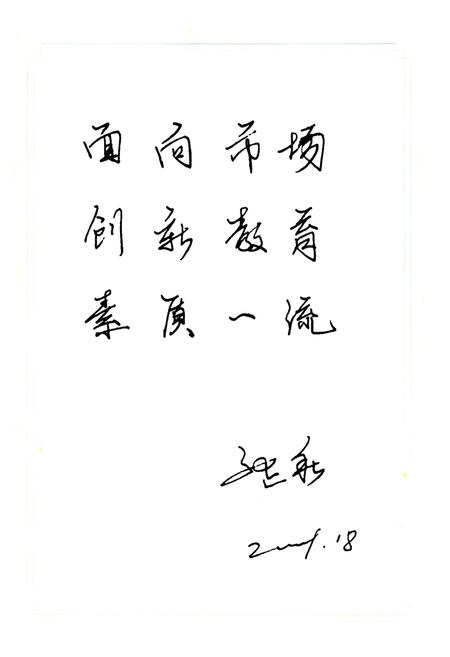 面向市场
创新教育
素质一流